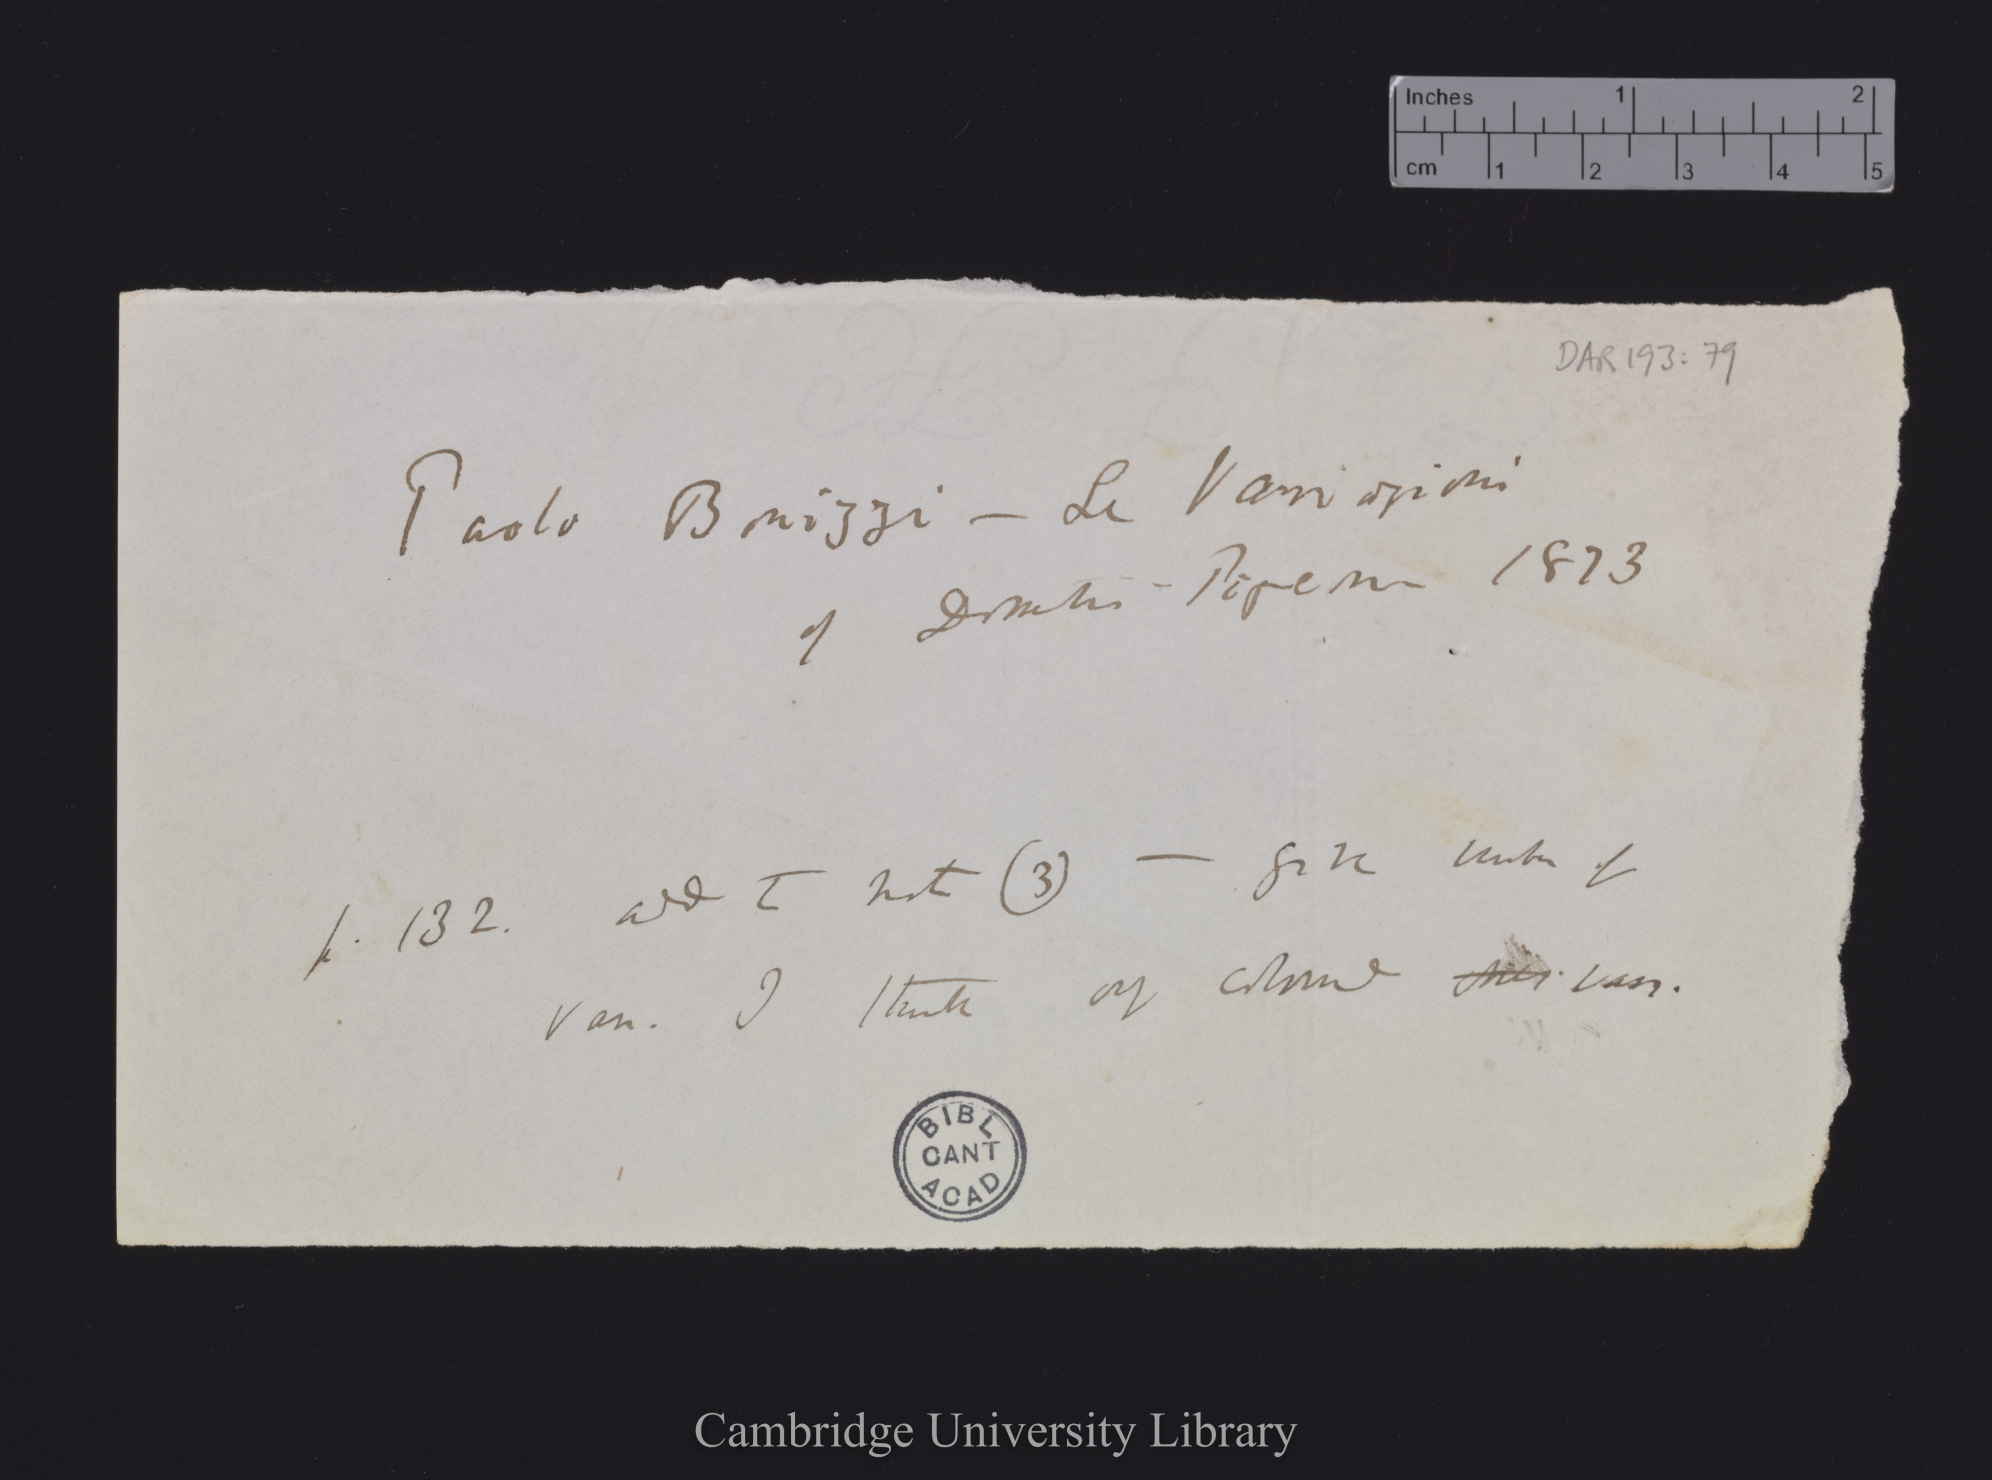 Inches 1 2
cm 1 2 3 4 5
DAR 193: 79
Paolo Bonizzi — Le Variazioni
of Domestic - Pigeon 1873
p. 132. add to note (3) — give number of
var. I think only coloured vars.
BIBL
CANT
ACAD
Cambridge University Library